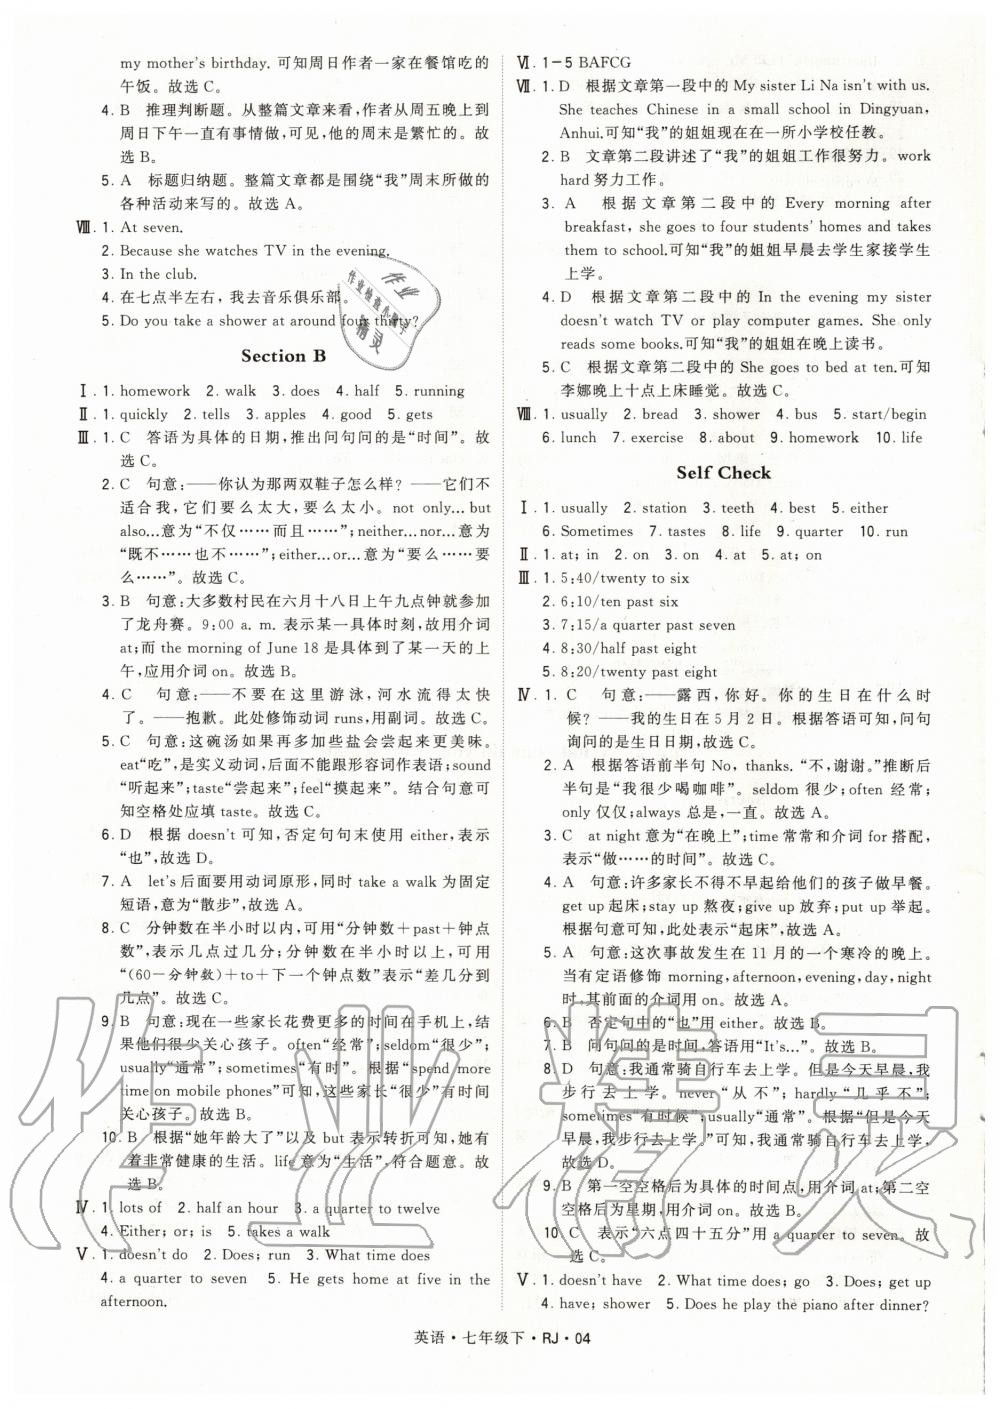 my mother's birthday. 可知周日作者一家在餐馆吃的
午饭。故选 C。
4. B 推理判断题。从整篇文章来看,作者从周五晚上到
周日下午一直有事情做,可见,他的周末是繁忙的。故
选 B。
5. A 标题归纳题。整篇文章都是围绕“我”周末所做的
各种活动来写的。故选 A。
Ⅷ. 1. At seven.
2. Because she watches TV in the evening.
3. In the club.
4. 在七点半左右，我去音乐俱乐部。
5. Do you take a shower at around four thirty?
Section B
Ⅰ. 1. homework 2. walk 3. does 4. half 5. running
Ⅱ. 1. quickly 2. tells 3. apples 4. good 5. gets
Ⅲ. 1. C 答语为具体的日期,推出问句问的是“时间”。故
选 C。
2. C 句意:——你认为那两双鞋子怎么样? ——它们不
适合我,它们要么太大,要么太小。not only...but
also...意为“不仅……而且……”;neither...nor...意为
“既不……也不……”;either...or...意为“要么……要
么……”。故选 C。
3. B 句意:大多数村民在六月十八日上午九点钟就参加
了龙舟赛。9:00 a. m. 表示某一具体时刻,故用介词
at;而 the morning of June 18 是具体到了某一天的上
午,应用介词 on。故选 B。
4. C 句意:——不要在这里游泳,河水流得太快
了。——抱歉。此处修饰动词 runs,用副词。故选 C。
5. C 句意:这碗汤如果再多加些盐会尝起来更美味。
eat“吃”,是实义动词,后面不能跟形容词作表语;sound
“听起来”;taste“尝起来”;feel“摸起来”。结合句意可
知空格处应填 taste。故选 C。
6. D 根据 doesn't 可知,否定句句末使用 either,表示
“也”,故选 D。
7. A let's 后面要用动词原形,同时 take a walk 为固定
短语,意为“散步”,故选 A。
8. C 分钟数在半小时以内,可用“分钟数+past+钟点
数”,表示几点过几分;分钟数在半小时以上,可用
“(60-分钟数)+to+下一个钟点数”表示“差几分到
几点”。故选 C。
9. B 句意:现在一些家长花费更多的时间在手机上,结
果他们很少关心孩子。often“经常”;seldom“很少”;
usually“通常”;sometimes“有时”。根据“spend more
time on mobile phones”可知,这些家长“很少”有时间
关心孩子。故选 B。
10. B 根据“她年龄大了”以及 but 表示转折可知,她有
着非常健康的生活。life 意为“生活”,符合题意。故
选 B。
Ⅳ. 1. lots of 2. half an hour 3. a quarter to twelve
4. Either; or; is 5. takes a walk
Ⅴ. 1. doesn't do 2. Does; run 3. What time does
4. a quarter to seven 5. He gets home at five in the
afternoon.
Ⅵ. 1-5 BAFCG
Ⅶ. 1. D 根据文章第一段中的 My sister Li Na isn't with us.
She teaches Chinese in a small school in Dingyuan,
Anhui.可知“我”的姐姐现在在一所小学校任教。
2. B 文章第二段讲述了“我”的姐姐工作很努力。work
hard 努力工作。
3. A 根据文章第二段中的 Every morning after
breakfast, she goes to four students' homes and takes
them to school.可知“我”的姐姐早晨去学生家接学生
上学。
4. D 根据文章第二段中的 In the evening my sister
doesn't watch TV or play computer games. She only
reads some books.可知“我”的姐姐在晚上读书。
5. C 根据文章第二段中的 She goes to bed at ten.可知
李娜晚上十点上床睡觉。故选 C。
Ⅷ. 1. usually 2. bread 3. shower 4. bus 5. start/begin
6. lunch 7. exercise 8. about 9. homework 10. life
Self Check
Ⅰ. 1. usually 2. station 3. teeth 4. best 5. either
6. Sometimes 7. tastes 8. life 9. quarter 10. run
Ⅱ. 1. at; in 2. on 3. on 4. at 5. at; on
Ⅲ. 1. 5:40/twenty to six
2. 6:10/ten past six
3. 7:15/a quarter past seven
4. 8:30/half past eight
5. 8:20/twenty past eight
Ⅳ. 1. C 句意:——露西,你好。你的生日在什么时
候? ——我的生日在 5 月 2 日。根据答语可知,问句
询问的是生日日期,故选 C。
2. A 根据答语前半句 No, thanks. “不,谢谢。”推断后
半句是“我很少喝咖啡”。seldom 很少;often 经常;
only 仅仅;always 总是,一直。故选 A。
3. C at night 意为“在晚上”;time 常常和介词 for 搭配,
表示“做……的时间”。故选 C。
4. A 句意:许多家长不得不早起给他们的孩子做早餐。
get up 起床;stay up 熬夜;give up 放弃;put up 举起。
根据句意可知,此处表示“起床”,故选 A。
5. A 句意:这次事故发生在 11 月的一个寒冷的晚上。
当有定语修饰 morning,afternoon,evening,day,night
时,其前面的介词用 on。故选 A。
6. B 否定句中的“也”用 either。故选 B。
7. B 问句问的是时间,答语用“It's...”。故选 B。
8. D 句意:我通常骑自行车去上学。但是今天早晨,我
步行去上学。never “从不”; hardly “几乎不”;
sometimes“有时候”;usually“通常”。根据“但是今天
早晨,我步行去上学”可知,我通常骑自行车去上学,
故选 D。
9. B 第一空空格后为具体的时间点,用介词 at;第二空
空格后为星期,用介词 on。故选 B。
10. C 表示“六点四十五分”用 a quarter to seven。故
选 C。
Ⅴ. 1. doesn't have 2. What time does; go 3. Does; get up
4. have; shower 5. Does he play the piano after dinner?
英语·七年级下·RJ·04
作业
作业检查小帮手
精灵
作业精灵